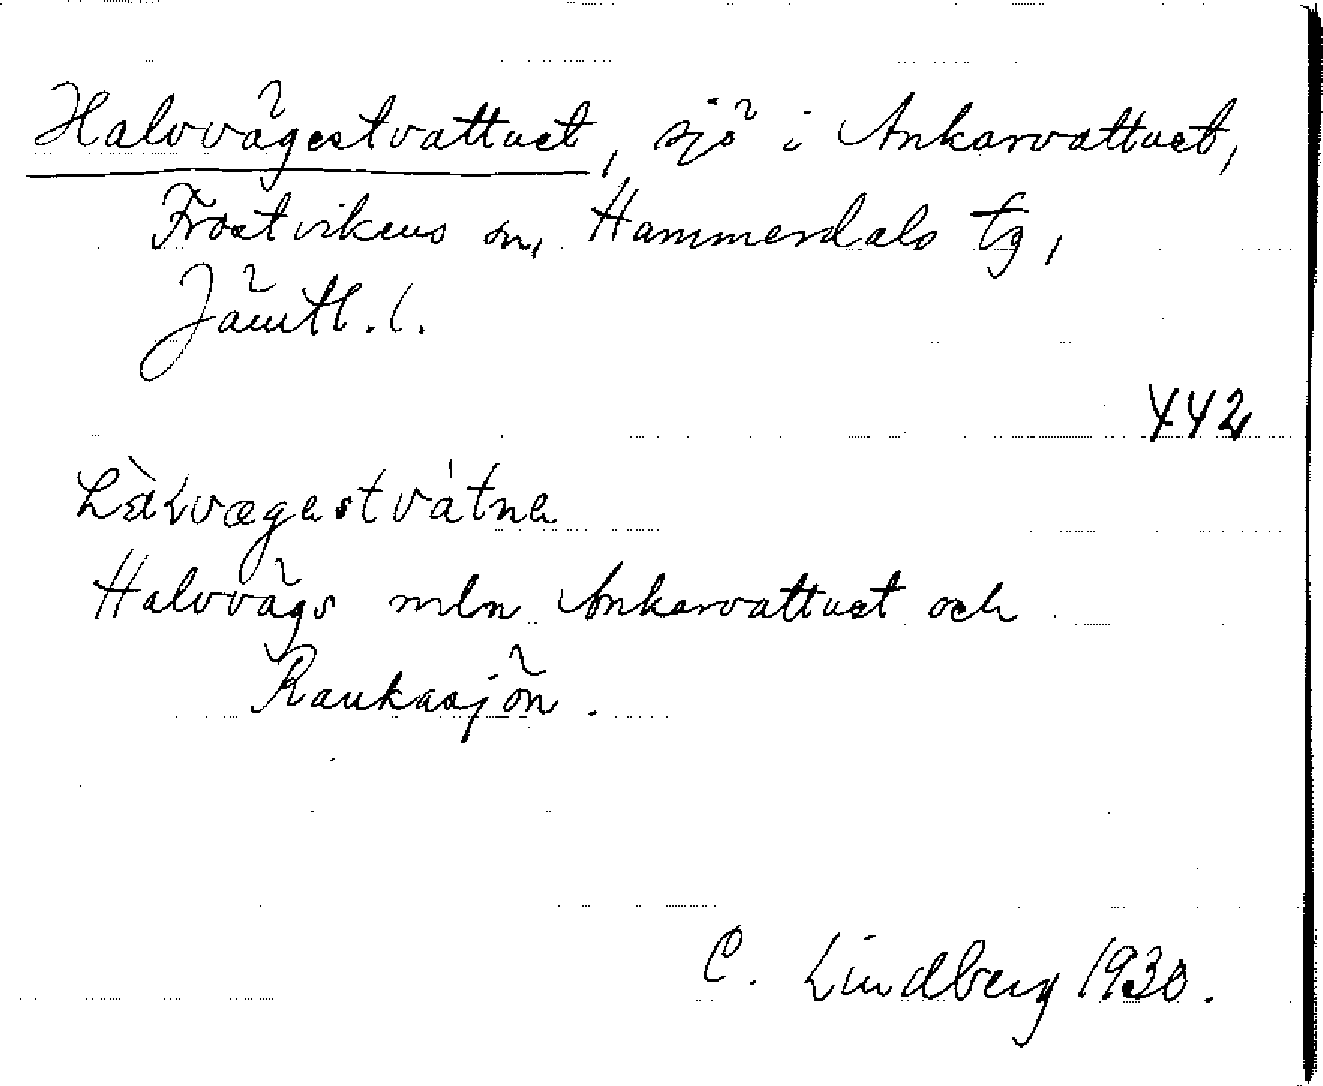 Halvvägestvattnet, sjö i Ankarvattnet,
Frostvikens sn, Hammerdals tg,
Jämtl. l.
442
Halvvägs mln Ankarvattnet och
Raukasjön.
C. Lindberg 1930.